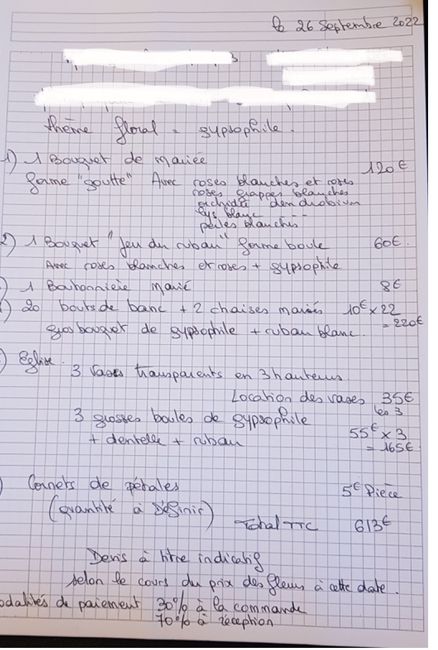 26 Septembre 2022
thème floral = gypsophile.
1) 1 Bouquet de mariée
forme "goutte" Avec roses blanches et roses 120€
roses grappes blanches
orchidée dendrobium
lys blanc ---
perles blanches
2) 1 Bouquet "jeu du ruban" forme boule 60€.
Avec roses blanches et roses + gypsophile
) 1 Boutonnière marié 8€
) 20 bouts de banc + 2 chaises mariés 10€ x 22
gros bouquet de gypsophile + ruban blanc. = 220€
) Eglise.
3 vases transparents en 3 hauteurs
Location des vases 35€
les 3
3 grosses boules de gypsophile 55€ x 3
+ dentelle + ruban = 165€
) Cornets de pétales 5€ Pièce
(quantité à Définir)
Total TTC 613€
Devis à titre indicatif
selon le cours du prix des fleurs à cette date.
odalités de paiement 30% à la commande
70% à réception